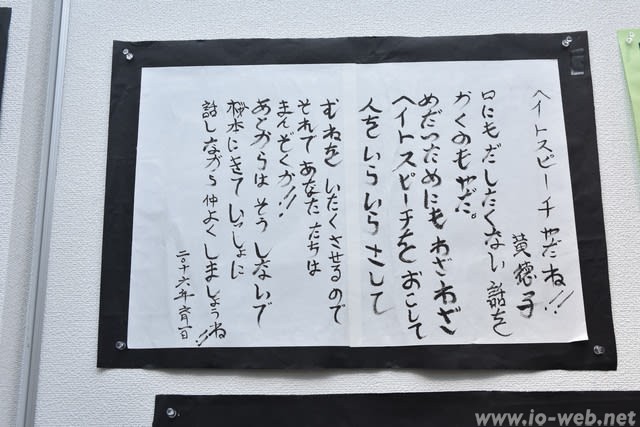 ヘイトスピーチやだね!!
黄徳子
口にもだしたくない話を
かくのもやだ。
めだつためにもわざわざ
ヘイトスピーチをおこして
人をいらいらさして
むねをいたくさせるので
それであなたたちは
まんぞくか!!
あしたからはそうしないで
桜本にきていっしょに
話しながら仲よくしましょうね!!
二〇十六年六月一日
www.io-web.net